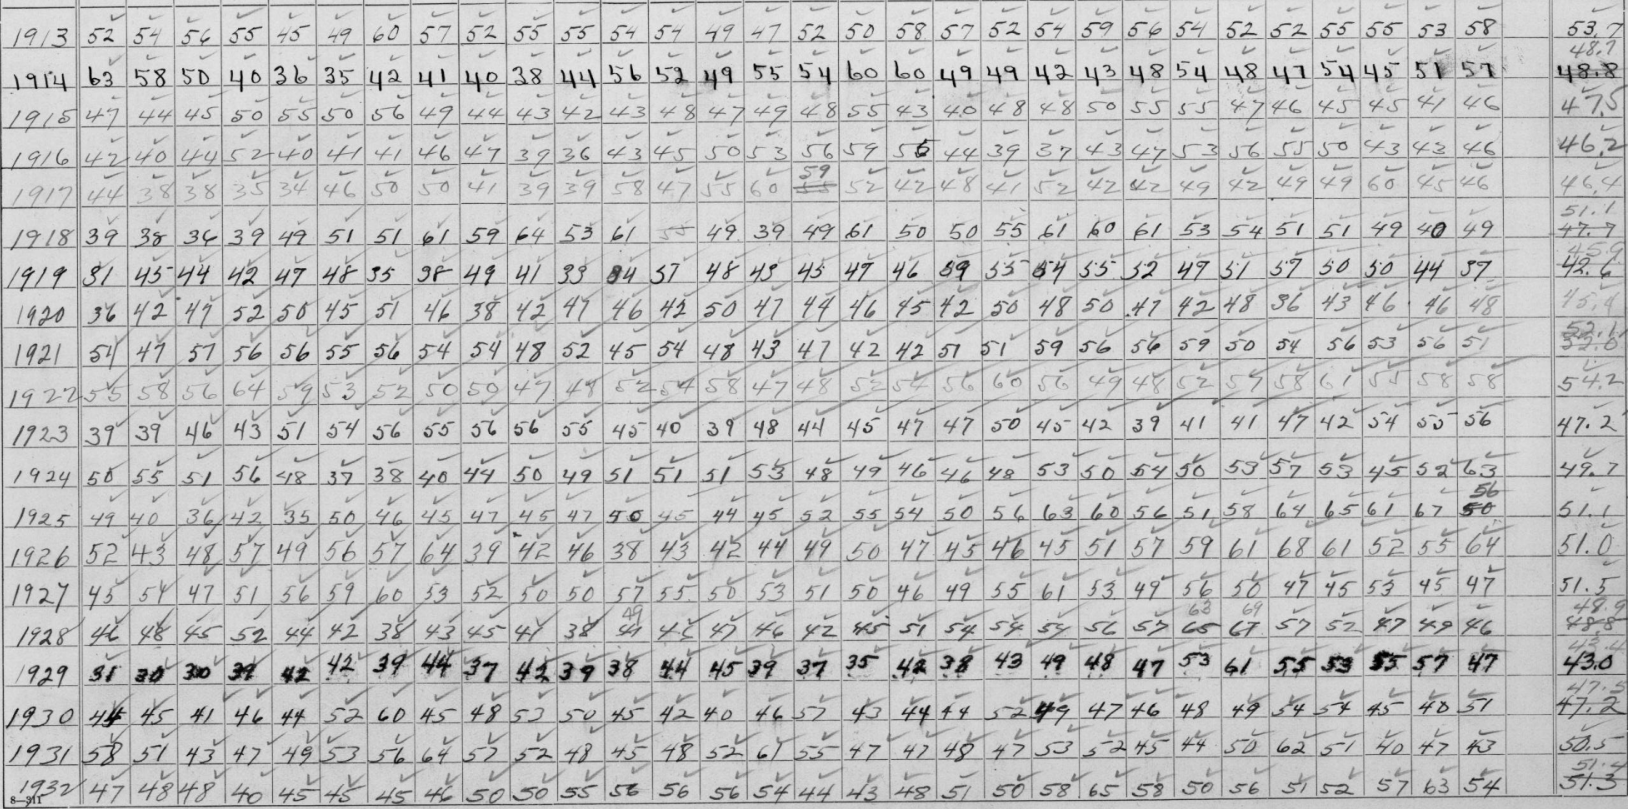 1913 52 54 56 55 45 49 60 57 52 55 55 54 54 49 47 52 50 58 57 52 54 59 56 54 52 52 55 55 53 58 53.7
48.7
1914 63 58 50 40 36 35 42 41 40 38 44 56 52 49 55 54 60 60 49 49 42 43 48 54 48 47 54 45 51 57 48.8
1915 47 44 45 50 55 50 56 49 44 43 42 43 48 47 49 48 55 43 40 48 48 50 55 55 47 46 45 45 41 46 47.5
1916 42 40 44 52 40 41 41 46 47 39 36 43 45 50 53 56 59 56 44 39 37 43 47 53 56 55 50 43 42 46 46.2
59
1917 44 38 38 35 34 46 50 50 41 39 39 58 47 55 60 55 52 42 48 41 52 42 42 49 42 49 49 60 45 46 46.4
51.1
1918 39 38 36 39 49 51 51 61 59 64 53 61 55 49 39 49 61 50 50 55 61 60 61 53 54 51 51 49 40 49 47.7
45.9
1919 31 45 44 42 47 48 35 38 49 41 33 34 37 48 43 45 47 46 59 55 54 55 52 47 51 57 50 50 44 37 42.6
1920 36 42 47 52 50 45 51 46 38 42 47 46 42 50 47 44 46 45 42 50 48 50 47 42 48 36 43 46 46 48 45.4
52.1
1921 54 47 57 56 56 55 56 54 54 48 52 45 54 48 43 47 42 42 51 51 59 56 56 59 50 54 56 53 56 51 52.0
1922 55 58 56 64 59 53 52 50 50 47 49 52 54 58 47 48 52 54 56 60 56 49 48 52 57 58 61 55 58 58 54.2
1923 39 39 46 43 51 54 56 55 56 56 55 45 40 39 48 44 45 47 47 50 45 42 39 41 41 47 42 54 55 56 47.2
1924 50 55 51 56 48 37 38 40 44 50 49 51 51 51 53 48 49 46 46 48 53 50 54 50 53 57 53 45 52 63 49.7
56
1925 49 40 36 42 35 50 46 45 47 45 47 50 45 44 45 52 55 54 50 56 63 60 56 51 58 64 65 61 67 50 51.1
1926 52 43 48 57 49 56 57 64 39 42 46 38 43 42 44 49 50 47 45 46 45 51 57 59 61 68 61 52 55 64 51.0
1927 45 54 47 51 56 59 60 53 52 50 50 57 55 50 53 51 50 46 49 55 61 53 49 56 50 47 45 53 45 47 51.5
49 63 69 48.9
1928 46 48 45 52 44 42 38 43 45 41 38 41 45 47 46 42 45 51 54 54 54 56 57 65 67 57 52 47 49 46 48.8
1929 31 30 30 39 42 42 39 44 37 42 39 38 44 45 39 37 35 42 38 43 49 48 47 53 61 55 53 55 57 47 43.0
47.5
1930 44 45 41 46 44 52 60 45 48 53 50 45 42 40 46 57 43 44 44 52 49 47 46 48 49 54 54 45 40 51 47.2
1931 58 51 43 47 49 53 56 64 57 52 48 45 48 52 61 55 47 47 48 47 53 52 45 44 50 62 51 40 47 43 50.5
51.4
1932 47 48 48 40 45 45 45 46 50 50 55 56 56 56 54 44 43 48 51 50 58 65 58 50 56 51 52 57 63 54 51.3